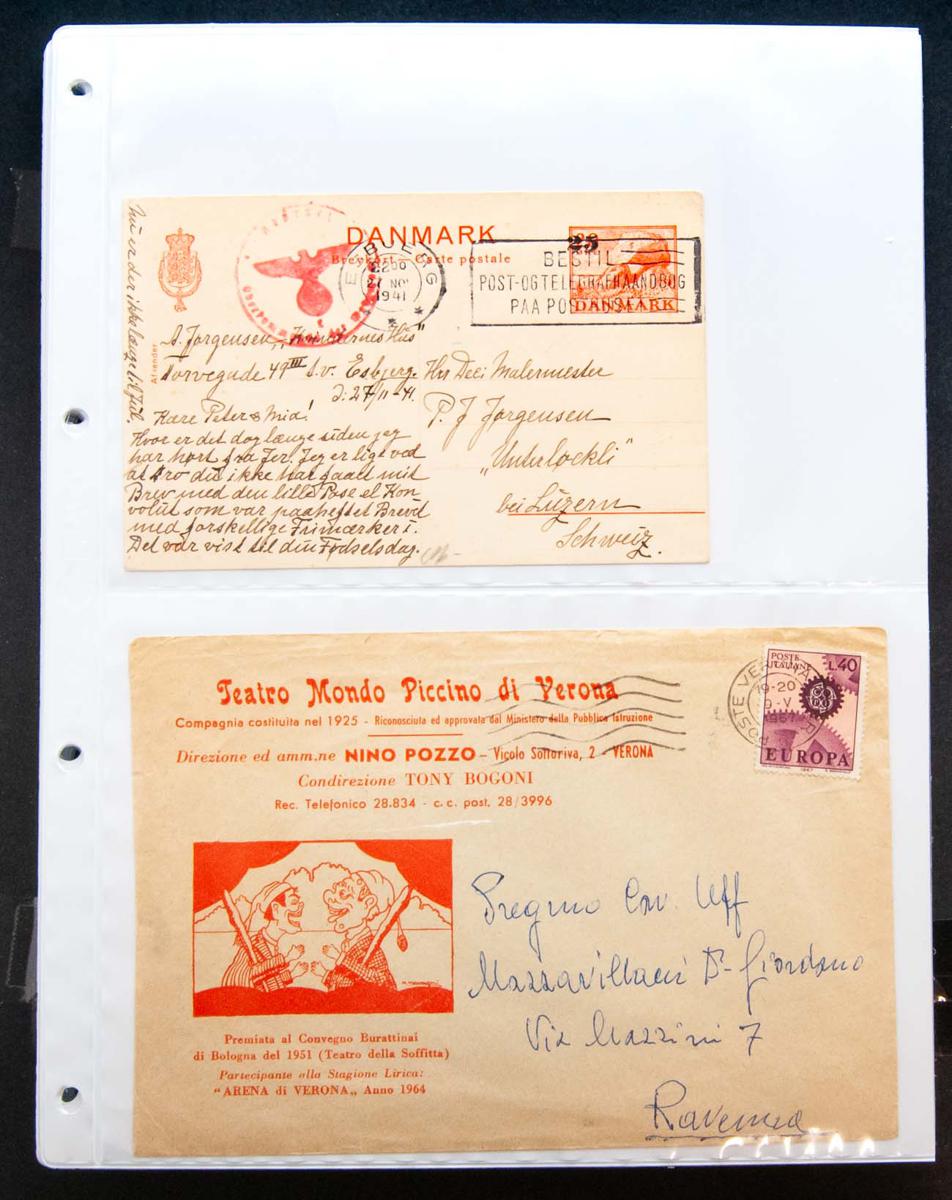 Nu er der ikke længe til Jul.
DANMARK
Brevkort - Carte postale
Afsender:
ESBJERG
2200
27 NO
1941
25
BESTIL
POST-OG TELEGRAFHAANDBOG
PAA POS
DANMARK
A. Jørgensen,
49 III S.v. Esbjerg.
d: 27/11-41.
Kære Peter & Mia!
Hvor er det dog længe siden jeg
har hørt fra Jer. Jeg er lige ved
at tro du ikke har faaet mit
Brev med den lille Pose el Kon
volut som var paaheftet Brevet
med forskellige Frimærker i.
Det var vist til din Fødselsdag.
Hrr Malermester
P. J Jørgensen
"Unterlöckli"
bei Luzern
Schweiz.
Teatro Mondo Piccino di Verona
Compagnia costituita nel 1925 - Riconosciuta ed approvata dal Ministero della Pubblica Istruzione
Direzione ed amm.ne NINO POZZO - Vicolo Sottoriva, 2 - VERONA
Condirezione TONY BOGONI
Rec. Telefonico 28.834 - c. c. post. 28/3996
POSTE ITALIANE
L.40
19-20
1967
EUROPA
Premiata al Convegno Burattinai
di Bologna del 1951 (Teatro della Soffitta)
Partecipante alla Stagione Lirica:
"ARENA di VERONA„ Anno 1964
Pregmo Cav. Uff
Mazzavillani Dr Giordano
Via Mazzini 7
Ravenna